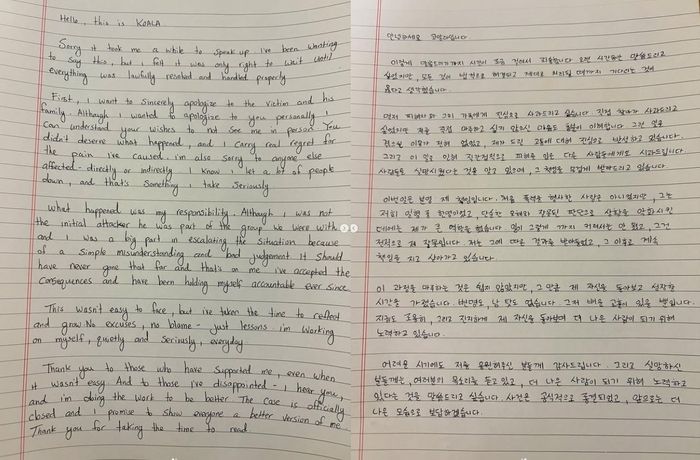 Hello, this is KOALA
Sorry it took me a while to speak up. I've been wanting
to say this, but I felt it was only right to wait until
everything was lawfully resolved and handled properly
First, I want to sincerely apologize to the Victim and his
family. Although I wanted to apologize to you personally I
can understand your wishes to not see me in person. You
didn't deserve what happened, and I carry real regret for
the pain i've caused. i'm also sorry to anyone else
affected - directly or indirectly. I know I let a lot of people
down, and that's something I take seriously
What happened was my responsibility. Although I was not
the initial attacker he was part of the group we were with
and I was a big part in escalating the situation because
of a simple misunderstanding and bad judgement It should
have never gone that far and that's on me i've accepted the
consequences and have been holding myself accountable ever since
This wasn't easy to face, but ive taken the time to reflect
and grow. No excuses, no blame - just lessons. i'm working
on myself, quietly and seriously, everyday
Thank you to those who have supported me, even when
it wasn't easy. And to those I've disappointed - I hear you,
and i'm doing the work to be better. The case is officially
closed and I promise to show everyone a better version of me
Thank you for taking the time to read
안녕하세요 코알라입니다.
이렇게 말씀드리기까지 시간이 조금 걸려서 죄송합니다 오랜 시간동안 말씀드리고
싶었지만, 모든 것이 법적으로 해결되고 제대로 처리될 때까지 기다리는 것이
옳다고 생각했습니다.
먼저 피해자와 그의 가족에게 진심으로 사과드리고 싶습니다 직접 찾아가 사과드리고
싶었지만 저를 직접 마주하고 싶지 않으신 마음도 충분히 이해합니다 그런 일을
겪으실 이유가 전혀 없었고, 제가 드린 고통에 대해 진심으로 반성하고 있습니다.
그리고 이 일로 인해 직간접적으로 피해를 입은 다른 사람들에게도 사과드립니다.
사람들을 실망시켰다는 것을 알고 있으며, 그 책임을 무겁게 받아들이고 있습니다
이번일은 분명 제 책임입니다. 처음 폭력을 행사한 사람은 아니었지만, 그는
저희 일행 중 한명이었고, 단순한 오해와 잘못된 판단으로 상황을 악화시킨
데에는 제가 큰 역할을 했습니다. 일이 그렇게 까지 커져서는 안 됐고, 그건
전적으로 제 잘못입니다. 저는 그에 따른 결과를 받아들였고, 그 이후로 계속
책임을 지고 살아가고 있습니다.
이 과정을 마주하는 것은 쉽지 않았지만, 그 만큼 제 자신을 돌아보고 성장할
시간을 가졌습니다. 변명도, 남 탓도 없습니다. 그저 배운 교훈이 있을 뿐입니다.
지금도 조용히, 그리고 진지하게 제 자신을 돌아보며 더 나은 사람이 되기 위해
노력하고 있습니다.
어려운 시기에도 저를 응원해주신 분들께 감사드립니다. 그리고 실망하신
분들께는, 여러분의 목소리를 듣고 있고, 더 나은 사람이 되기 위해 노력하고
있다는 것을 말씀드리고 싶습니다. 사건은 공식적으로 종결되었고, 앞으로는 더
나은 모습으로 보답하겠습니다.